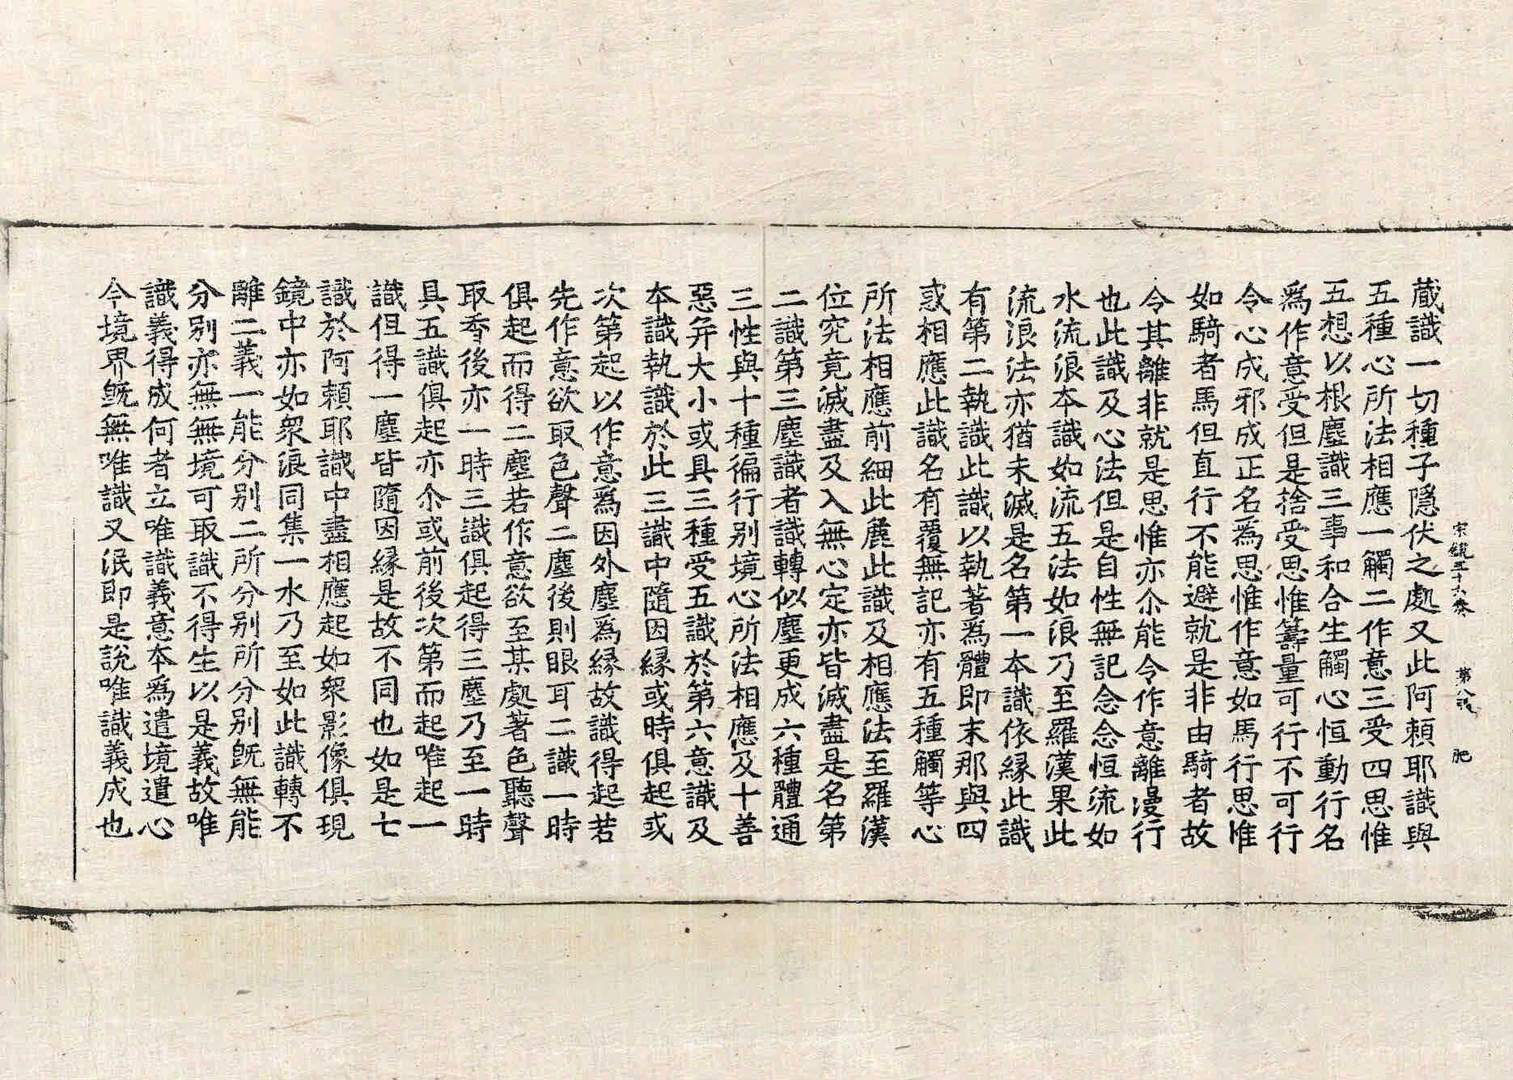 宗鏡五十六卷 第八張 肥
蔵識一切種子隱伏之處又此阿賴耶識與
五種心所法相應一觸二作意三受四思惟
五想以根塵識三事和合生觸心恒動行名
爲作意受但是捨受思惟籌量可行不可行
令心成邪成正名爲思惟作意如馬行思惟
如騎者馬但直行不能避就是非由騎者故
令其離非就是思惟亦尒能令作意離漫行
也此識及心法但是自性無記念念恒流如
水流浪本識如流五法如浪乃至羅漢果此
流浪法亦猶未滅是名第一本識依緣此識
有第二執識此識以執著爲體即末那與四
惑相應此識名有覆無記亦有五種觸等心
所法相應前細此麁此識及相應法至羅漢
位究竟滅盡及入無心定亦皆滅盡是名第
二識第三塵識者識轉似塵更成六種體通
三性與十種徧行别境心所法相應及十善
惡并大小或具三種受五識於第六意識及
本識執識於此三識中隨因緣或時俱起或
次第起以作意爲因外塵爲緣故識得起若
先作意欲取色聲二塵後則眼耳二識一時
俱起而得二塵若作意欲至某處著色聽聲
取香後亦一時三識俱起得三塵乃至一時
具五識俱起亦尒或前後次第而起唯起一
識但得一塵皆隨因緣是故不同也如是七
識於阿賴耶識中盡相應起如衆影像俱現
鏡中亦如衆浪同集一水乃至如此識轉不
離二義一能分别二所分别所分别旣無能
分别亦無無境可取識不得生以是義故唯
識義得成何者立唯識義意本爲遣境遣心
今境界旣無唯識又泯即是說唯識義成也